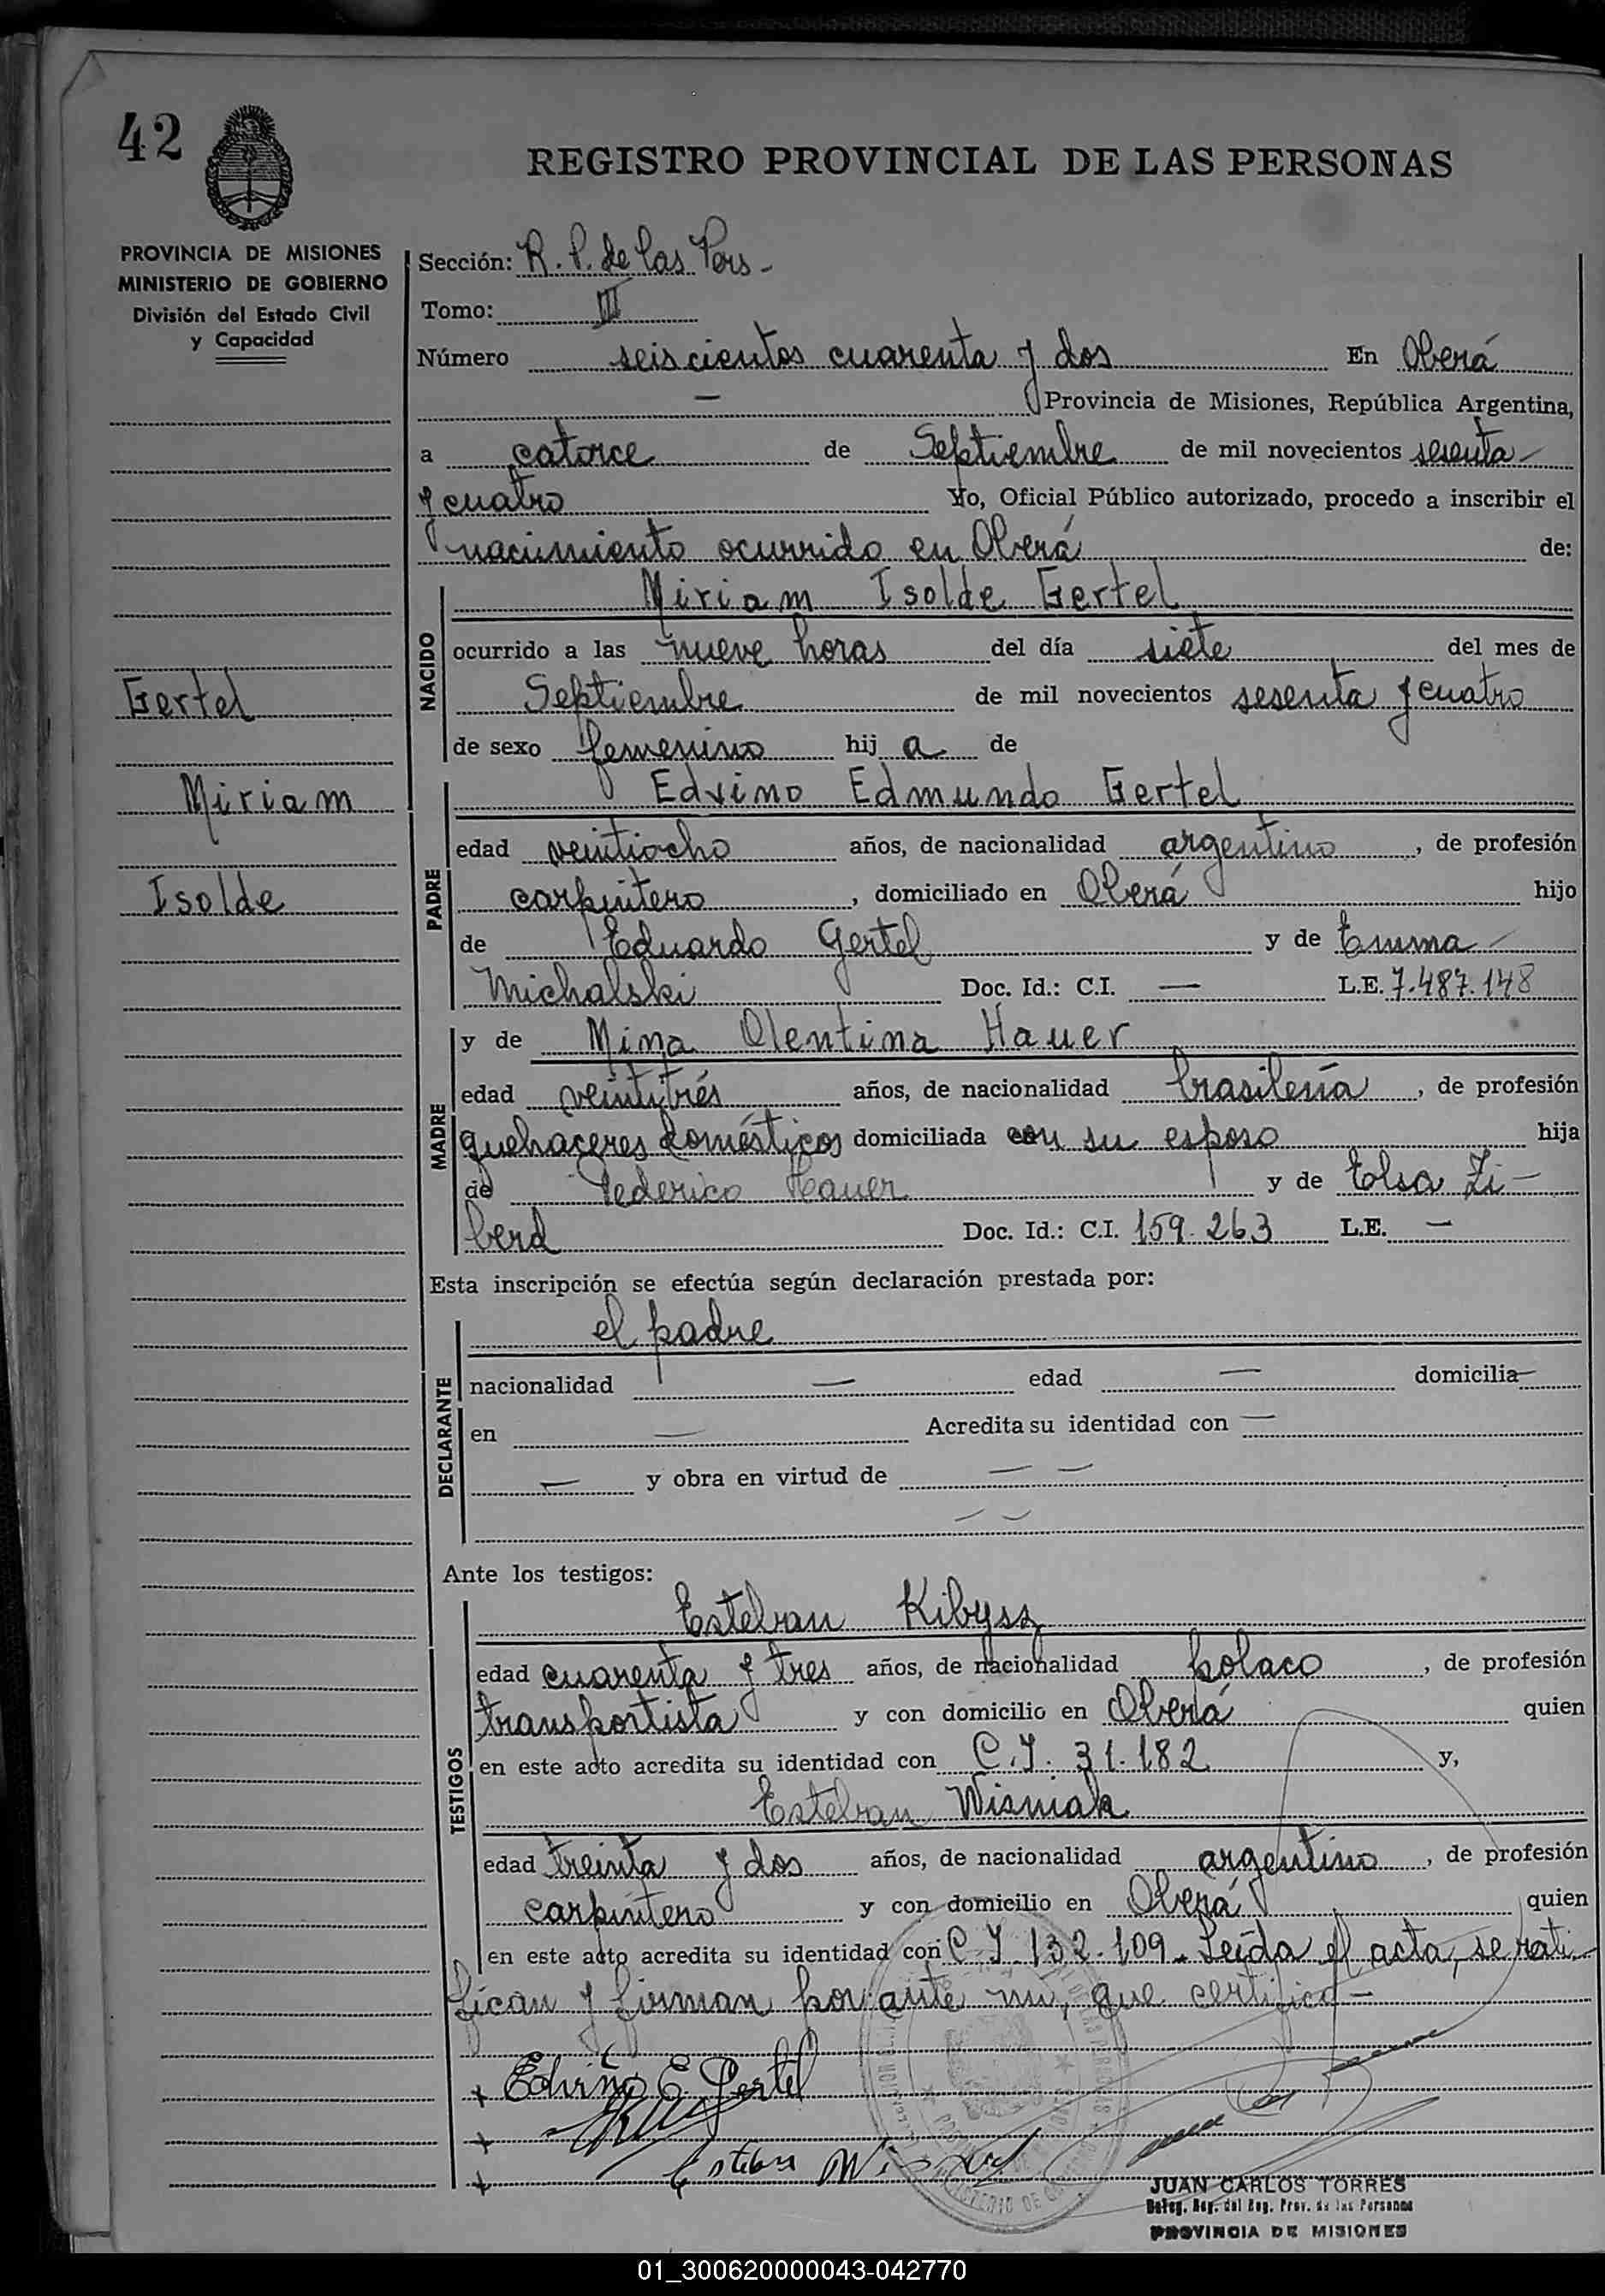 42
REGISTRO PROVINCIAL DE LAS PERSONAS
PROVINCIA DE MISIONES
MINISTERIO DE GOBIERNO
División del Estado Civil
y Capacidad
Gertel
Miriam
Isolde
Sección: R. P. de las Pers-
Tomo: III
Número seiscientos cuarenta y dos En Oberá
— Provincia de Misiones, República Argentina,
a catorce de Septiembre de mil novecientos sesenta
y cuatro Yo, Oficial Público autorizado, procedo a inscribir el
nacimiento ocurrido en Oberá de:
NACIDO
Miriam Isolde Gertel
ocurrido a las nueve horas del día siete del mes de
Septiembre de mil novecientos sesenta y cuatro
de sexo femenino hij a de
PADRE
Edvino Edmundo Gertel
edad veintiocho años, de nacionalidad argentino, de profesión
carpintero, domiciliado en Oberá hijo
de Eduardo Gertel y de Emma
Michalski Doc. Id.: C.I. — L.E. 7.487.148
MADRE
y de Mina Olentina Hauer
edad veintitrés años, de nacionalidad brasileña, de profesión
quehaceres domésticos domiciliada con su esposo hija
de Federico Hauer y de Elsa Zi-
berd Doc. Id.: C.I. 159.263 L.E. —
Esta inscripción se efectúa según declaración prestada por:
DECLARANTE
el padre
nacionalidad — edad — domicilia—
en — Acredita su identidad con —
— y obra en virtud de — —
— —
Ante los testigos:
TESTIGOS
Esteban Kibysz
edad cuarenta y tres años, de nacionalidad polaco, de profesión
transportista y con domicilio en Oberá quien
en este acto acredita su identidad con C.I. 31.182 y,
Esteban Wisniak
edad treinta y dos años, de nacionalidad argentino, de profesión
carpintero y con domicilio en Oberá quien
en este acto acredita su identidad con C I 132.109. Leída el acta, se rati-
fican y firman por ante mi, que certifico-
Edvino E Gertel
Esteban
JUAN CARLOS TORRES
Deleg. Reg. del Reg. Prov. de las Personas
PROVINCIA DE MISIONES
01_300620000043-042770